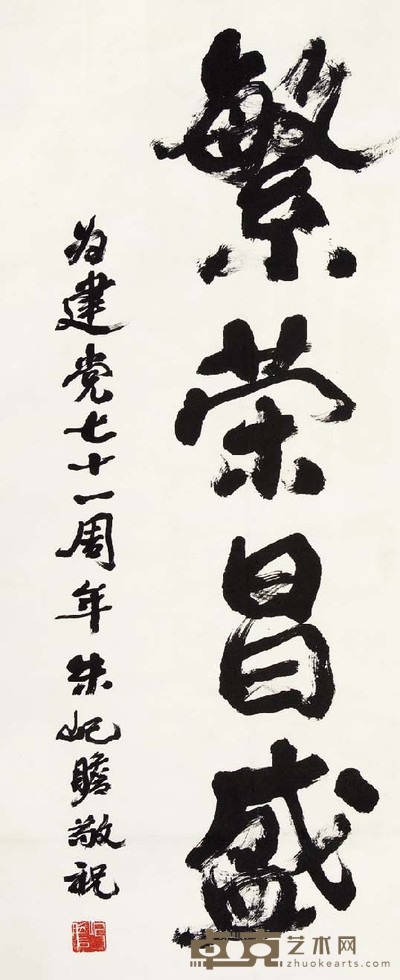 繁荣昌盛
为建党七十一周年朱屺瞻敬祝
卓克艺术网
zhuokearts.com